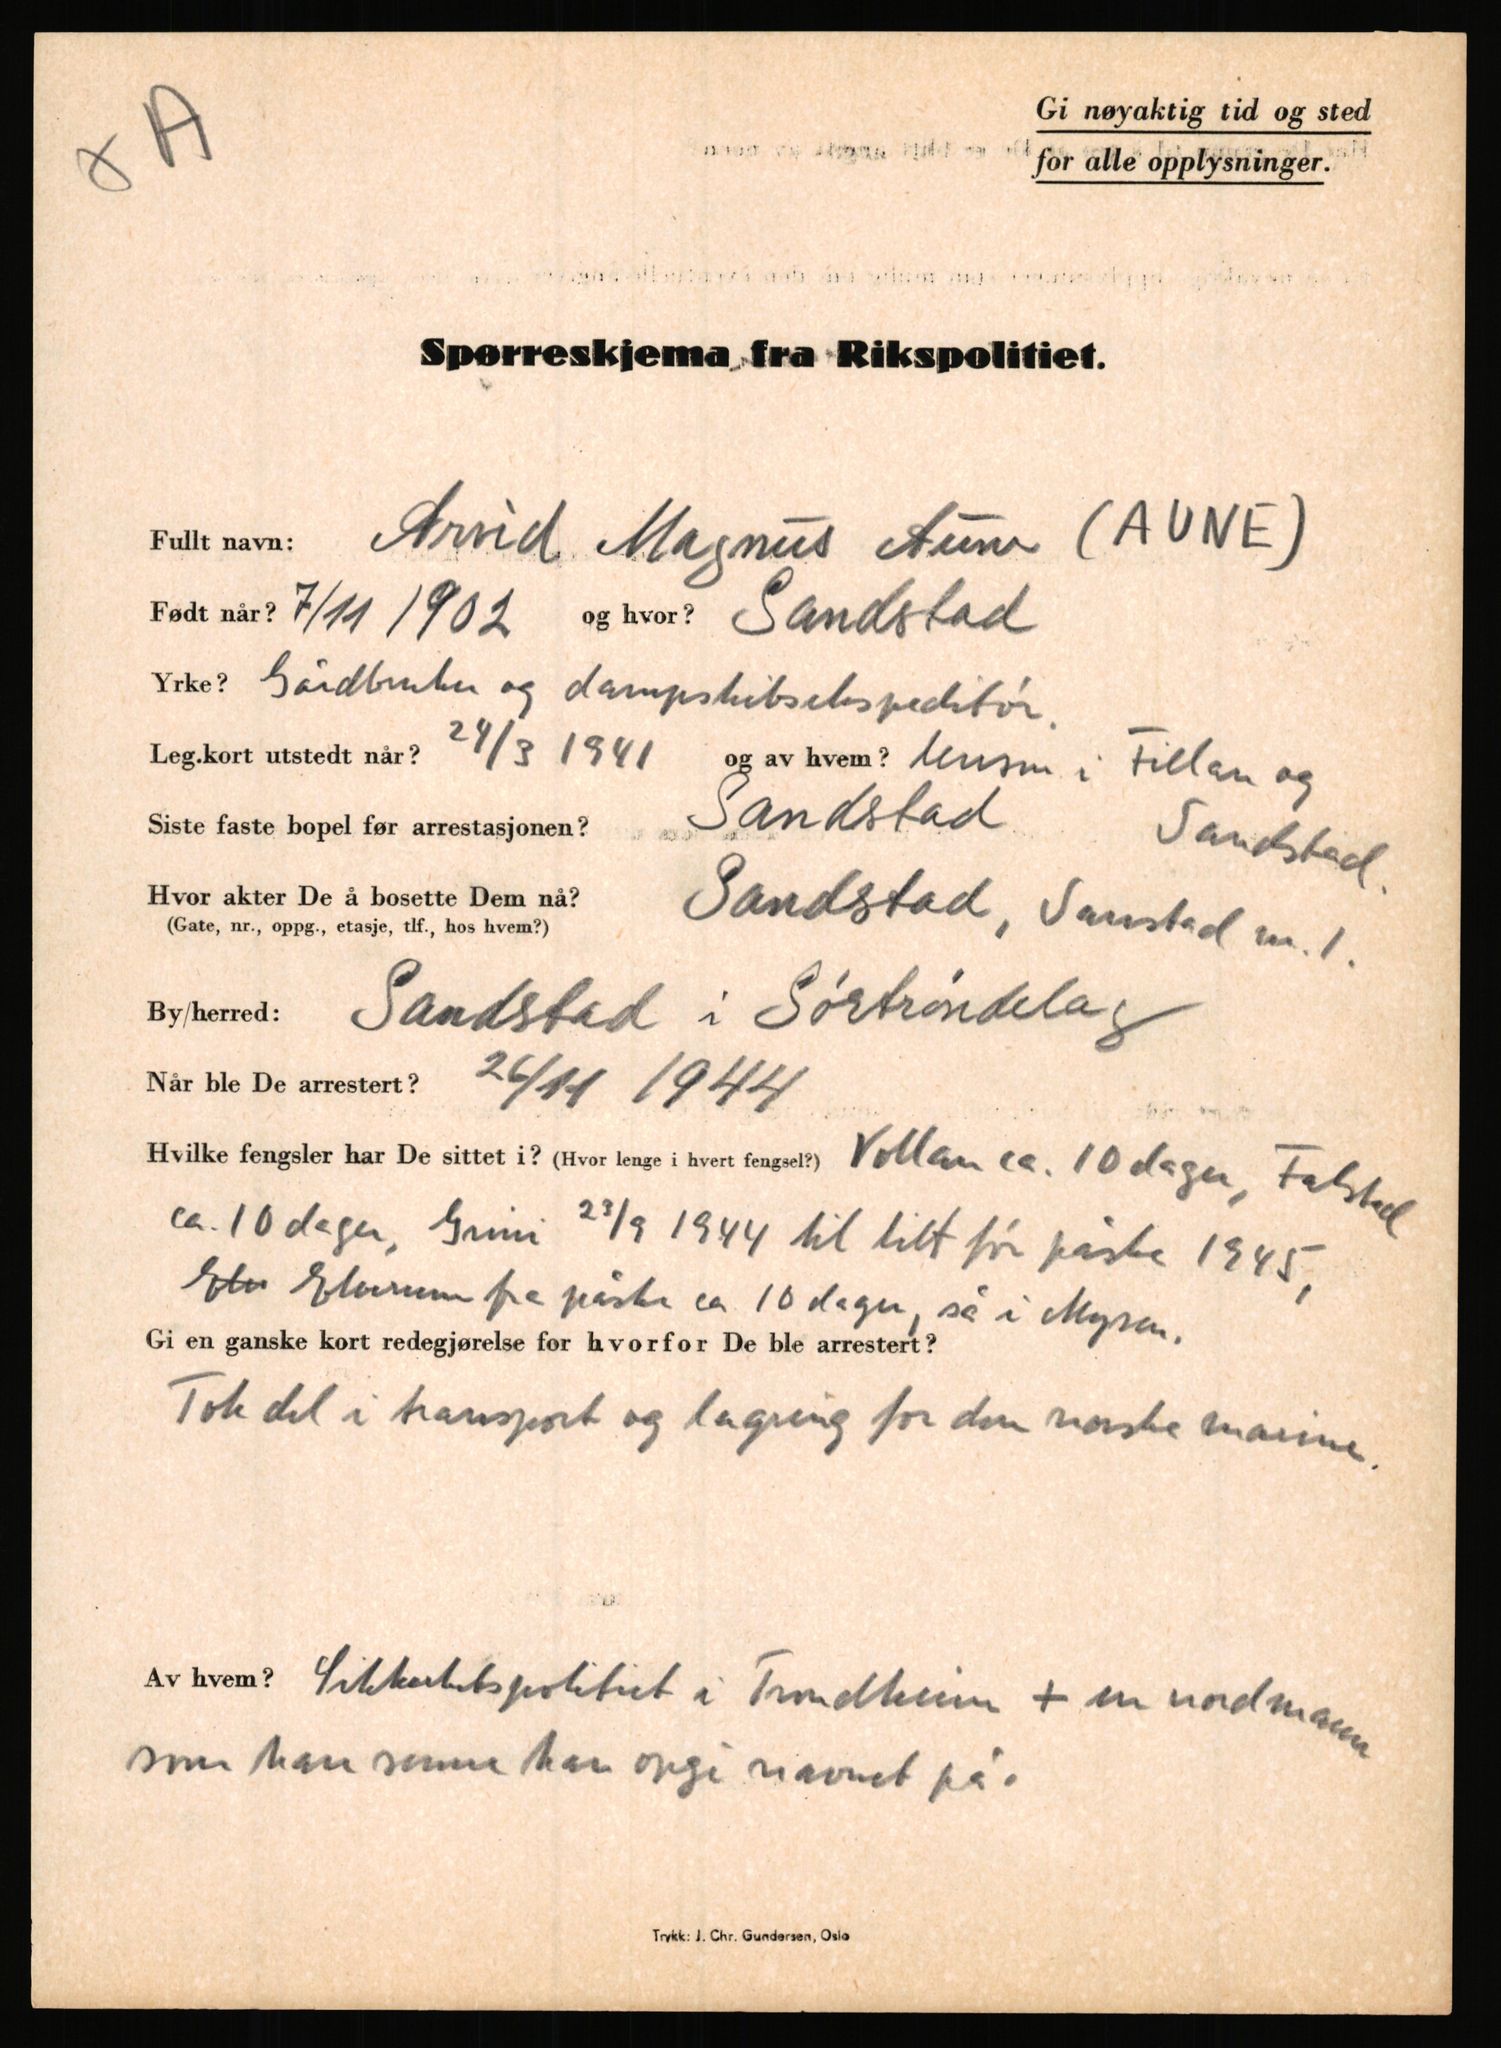 x A
Gi nøyaktig tid og sted
for alle opplysninger.
Spørreskjema fra Rikspolitiet.
Fullt navn: Arvid Magnus Aune (AUNE)
Født når? 7/11 1902 og hvor? Sandstad
Yrke? Gårdbruker og dampskibsekspeditør.
Leg.kort utstedt når? 24/3 1941 og av hvem? lensm i Fillan og
Sandstad.
Siste faste bopel før arrestasjonen? Sandstad
Hvor akter De å bosette Dem nå? Sandstad, Sanstad m. 1.
(Gate, nr., oppg., etasje, tlf., hos hvem?)
By/herred: Sandstad i Sørtrøndelag
Når ble De arrestert? 26/11 1944
Hvilke fengsler har De sittet i? (Hvor lenge i hvert fengsel?) Vollan ca. 10 dager, Falstad
ca. 10 dager, Grini 23/9 1944 til litt før påske 1945,
Elv Elverum fra påske ca 10 dager, så i Mysen.
Gi en ganske kort redegjørelse for hvorfor De ble arrestert?
Tok del i transport og lagring for den norske marine.
Av hvem? Sikkerhetspolitiet i Trondheim + en nordmann
som han senere kan opgi navnet på.
Trykk: J. Chr. Gundersen, Oslo